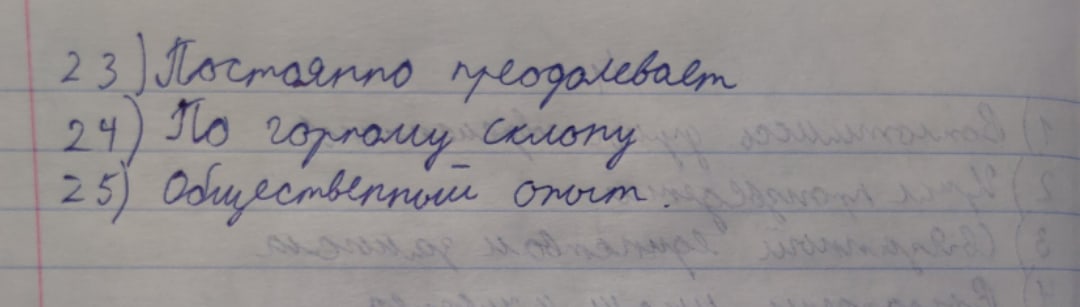 23) Постоянно преодолевает
24) По горному склону
25) Общественный опыт.